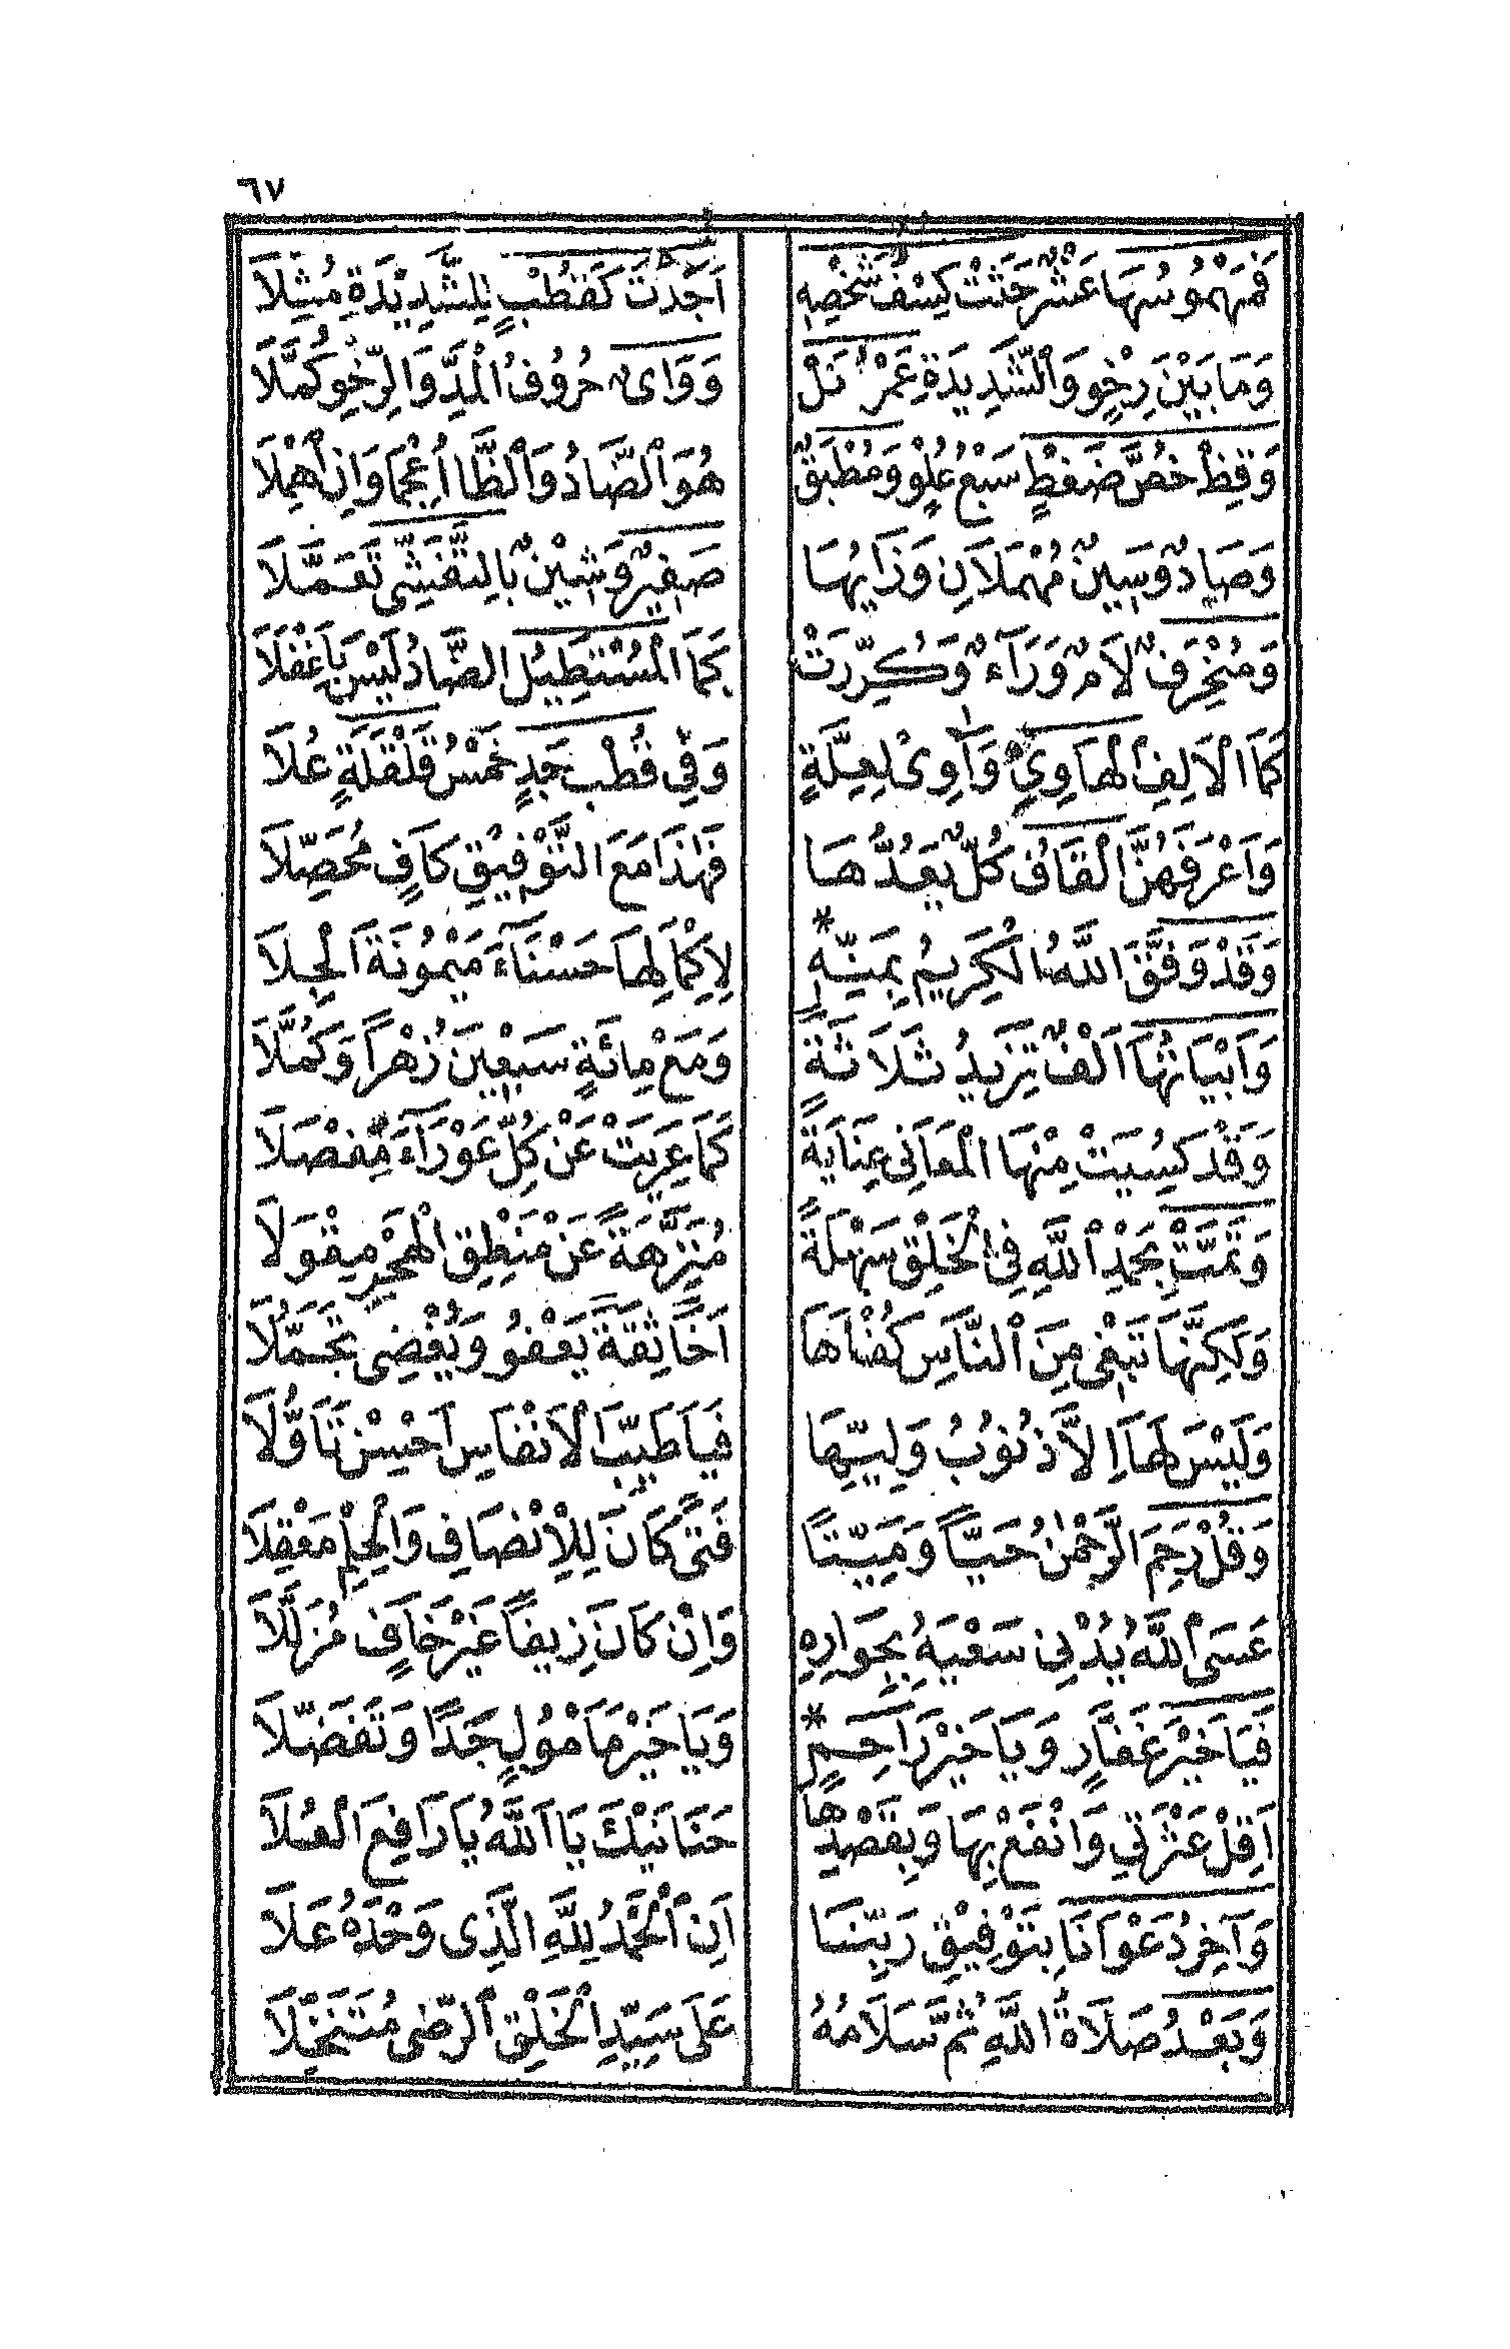 ٦٧
فَمَهْمُوسُهَا عَشْرٌ حَثَتْ كِسْفَ شَخْصِهِ اَجَدَّتْ كَقُطْبٍ لِلشَّدِيْدَةِ مُثِّلَا
وَمَا بَيْنَ رِخْوٍ وَالشَّدِيدَةِ عَمْرُ نَلْ وَوَاىٌ حُرُوفُ الْمَدِّ وَالرِّخْوِ كَمَّلَا
وَقِظْ خُصَّ ضَغْطٍ سَبْعُ عُلْوٍ وَمُطْبَقٌ هُوَ الضَّادُ وَالظَّا اُعْجِمَا وَاِنْ اُهْمِلَا
وَصَادٌ وَسِينٌ مُهْمَلَانِ وَزَايُهَا صَفِيرٌ وَشِيْنٌ بِالتَّفَشِّى تَعَمَّلَا
وَمُنْحَرِفٌ لَامٌ وَرَآءٌ وَكُرِّرَتْ كَمَا الْمُسْتَطِيلُ الضَّادُ لَيْسَ بِاَغْفَلَا
كَمَا الْاَلِفُ الْهَاوِي وَاٰوِىْ لِعِلَّةٍ وَفِى قُطْبِ جَدٍ خَمْسُ قَلْقَلَةٍ عُلَا
وَاَعْرَفُهُنَّ الْقَافُ كُلٌّ يَعُدُّهَا فَهٰذَا مَعَ التَّوْفِيْقِ كَافٍ مُحَصِّلَا
وَقَدْ وَفَّقَ اللَّهُ الْكَرِيْمُ بِمَنِّهٖ * لِاِكْمَالِهَا حَسْنَآءَ مَيْمُوْنَةَ الْجِلَا
وَاَبْيَاتُهَا اَلْفٌ تَزِيْدُ ثَلَاثَةً وَمَعْ مِائَةٍ سَبْعِيْنَ زُهْرًا وَكُمَّلَا
وَقَدْ كُسِيَتْ مِنْهَا الْمَعَانِى عِنَايَةً كَمَا عَرِيَتْ عَنْ كُلِّ عَوْرَآءَ مِفْصَلَا
وَتَمَّتْ بِحَمْدِ اللَّهِ فِى الْخَلْقِ سَهْلَةً مُنَزَّهَةً عَنْ مَنْطِقِ الْهُجْرِ مِقْوَلَا
وَلٰكِنَّهَا تَبْغِى مِنَ النَّاسِ كُفْأَهَا اَخَا ثِقَةٍ يَعْفُو وَيُغْضِى تَجَمُّلَا
وَلَيْسَ لَهَا اِلَّا ذُنُوْبُ وَلِيِّهَا فَيَا طَيِّبَ الْاَنْفَاسِ اَحْسِنْ تَأَوُّلَا
وَقُلْ رَحِمَ الرَّحْمٰنُ حَيًّا وَمَيِّتًا فَتًى كَانَ لِلْاِنْصَافِ وَالْحِلْمِ مَعْقِلَا
عَسَى اللَّهُ يُدْنِى سَعْيَهُ بِجِوَارِهِ وَاِنْ كَانَ زِيفًا غَيْرَ خَافٍ مُزَلَّلَا
فَيَا خَيْرَ غَفَّارٍ وَيَا خَيْرَ رَاحِمٍ * وَيَا خَيْرَ مَأْمُوْلٍ جَدًا وَتَفَضُّلَا
اَقِلْ عَثْرَتِي وَانْفَعْ بِهَا وَبِقَصْدِهَا حَنَانَيْكَ يَا اَللَّهُ يَا رَافِعَ الْعُلَا
وَآخِرُ دَعْوَانَا بِتَوْفِيْقِ رَبِّنَا اَنِ الْحَمْدُ لِلَّهِ الَّذِى وَحْدَهُ عَلَا
وَبَعْدُ صَلَاةُ اللَّهِ ثُمَّ سَلَامُهُ عَلَى سَيِّدِ الْخَلْقِ الرِّضٰى مُتَنَخِّلَا